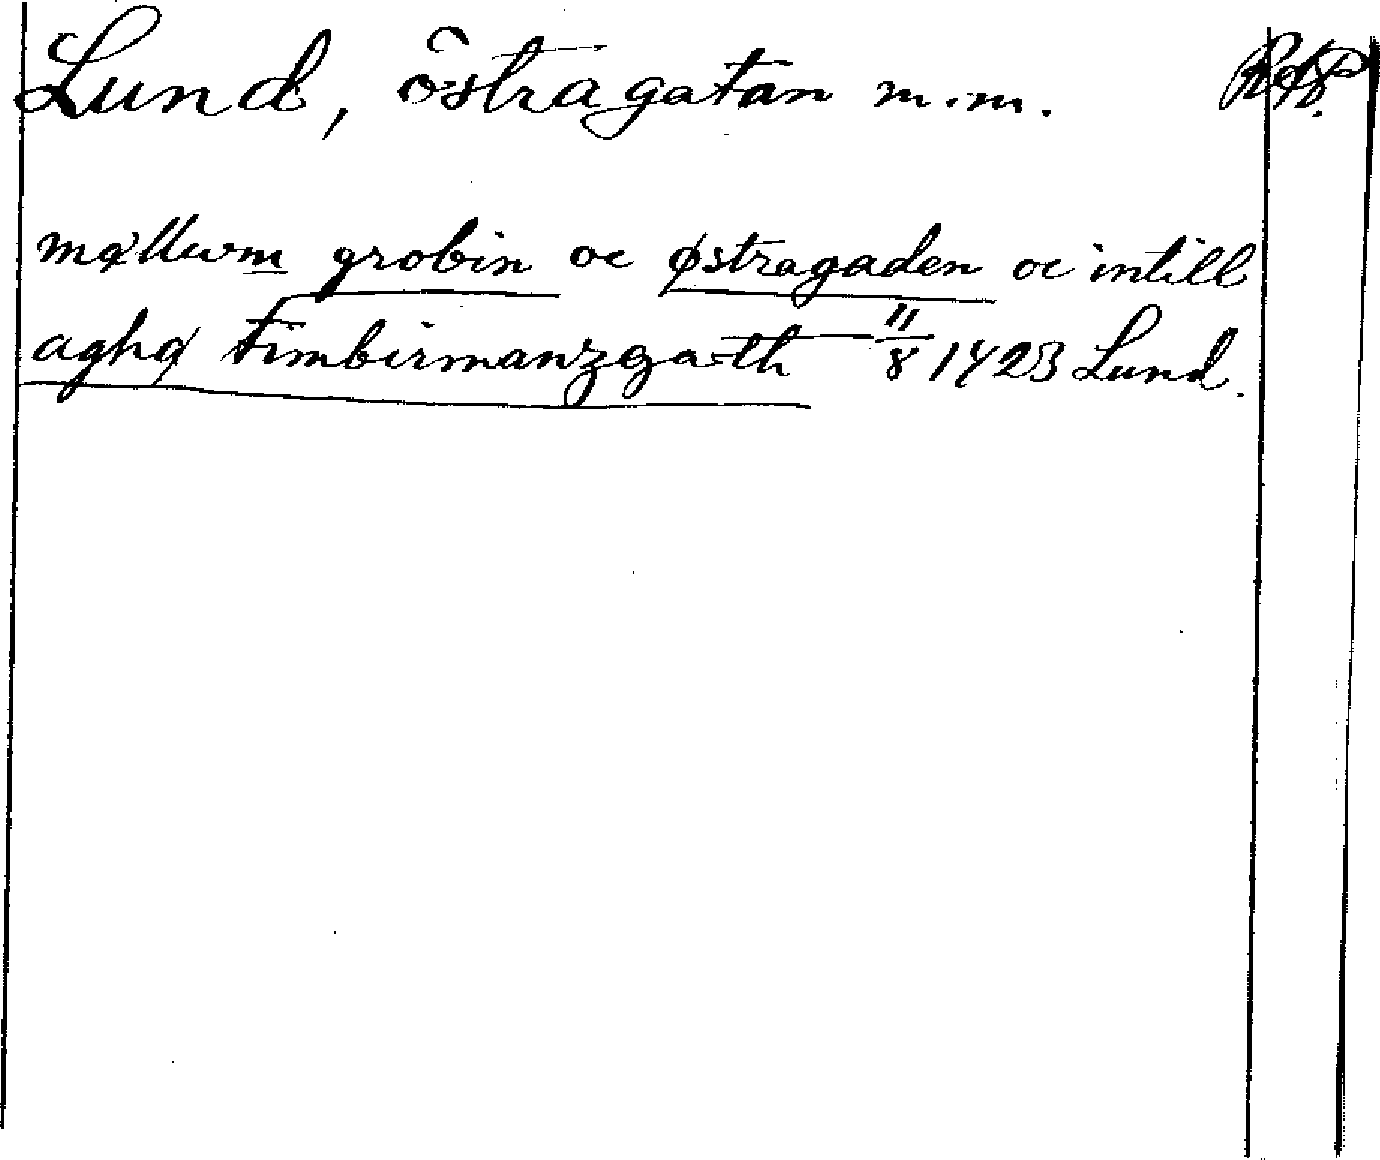 Lund, östragatan m.m. RAP.
mællwm grobin oc østragaden oc intill
aghæ timbirmanzgath 11/8 1423 Lund.